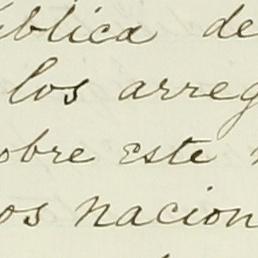 ública de
los arreg
obre este
os nacion